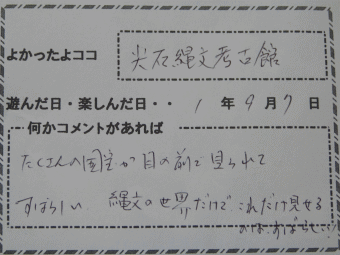 よかったよココ 尖石縄文考古館
遊んだ日・楽しんだ日・・ 1 年 9 月 7 日
何かコメントがあれば
たくさんの国宝が目の前で見られて
すばらしい 縄文の世界だけで これだけ見せる
のは、すばらしい!